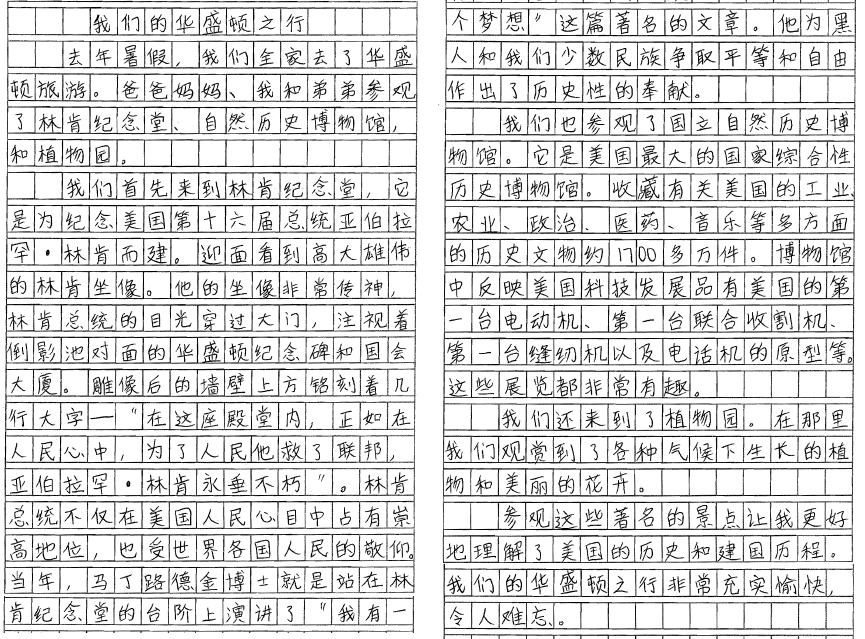 我们的华盛顿之行
去年暑假，我们全家去了华盛
顿旅游。爸爸妈妈、我和弟弟参观
了林肯纪念堂、自然历史博物馆，
和植物园。
我们首先来到林肯纪念堂，它
是为纪念美国第十六届总统亚伯拉
罕·林肯而建。迎面看到高大雄伟
的林肯坐像。他的坐像非常传神，
林肯总统的目光穿过大门，注视着
倒影池对面的华盛顿纪念碑和国会
大厦。雕像后的墙壁上方铭刻着几
行大字—“在这座殿堂内，正如在
人民心中，为了人民他救了联邦，
亚伯拉罕·林肯永垂不朽”。林肯
总统不仅在美国人民心目中占有崇
高地位，也受世界各国人民的敬仰。
当年，马丁路德金博士就是站在林
肯纪念堂的台阶上演讲了“我有一
个梦想”这篇著名的文章。他为黑
人和我们少数民族争取平等和自由
作出了历史性的奉献。
我们也参观了国立自然历史博
物馆。它是美国最大的国家综合性
历史博物馆。收藏有关美国的工业、
农业、政治、医药、音乐等多方面
的历史文物约1700多万件。博物馆
中反映美国科技发展品有美国的第
一台电动机、第一台联合收割机、
第一台缝纫机以及电话机的原型等。
这些展览都非常有趣。
我们还来到了植物园。在那里
我们观赏到了各种气候下生长的植
物和美丽的花卉。
参观这些著名的景点让我更好
地理解了美国的历史和建国历程。
我们的华盛顿之行非常充实愉快，
令人难忘。